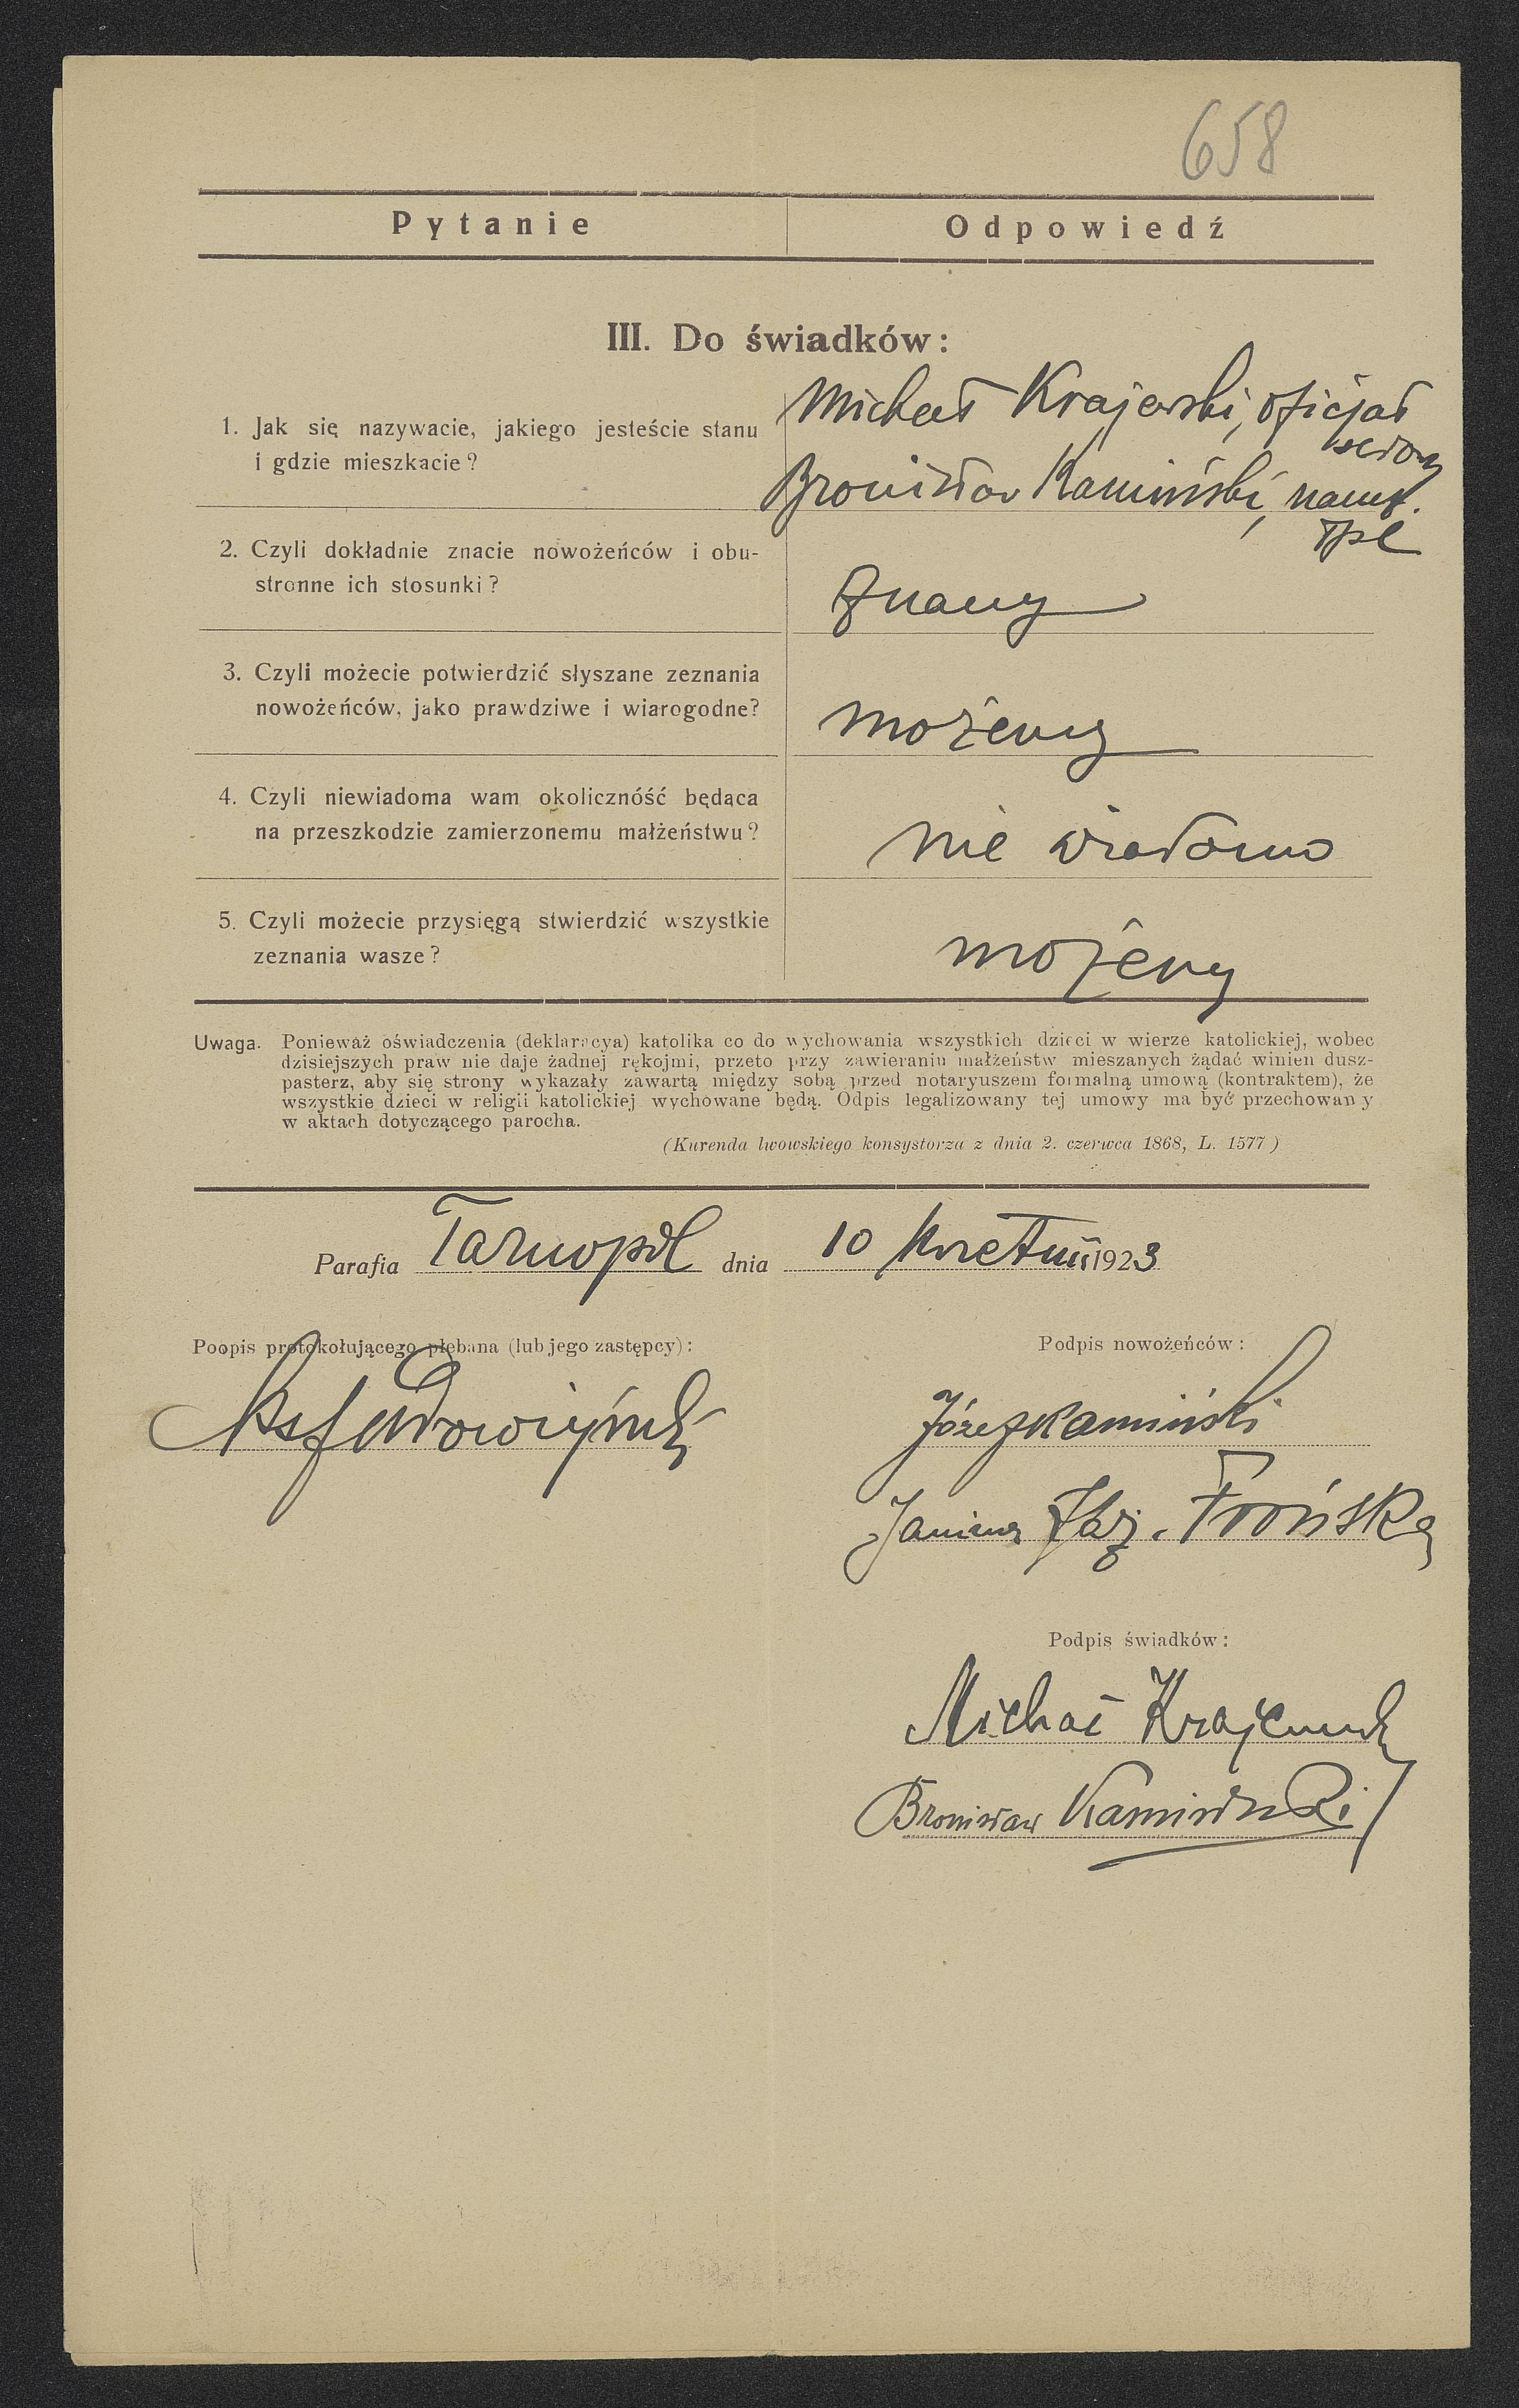 658
Pytanie
Odpowiedź
III. Do świadków:
1. Jak się nazywacie, jakiego jesteście stanu
i gdzie mieszkacie?
Michał Krajewski, oficjał
Bronisław Kamiński,
2. Czyli dokładnie znacie nowożeńców i obu-
stronne ich stosunki?
Znamy
3. Czyli możecie potwierdzić słyszane zeznania
nowożeńców, jako prawdziwe i wiarogodne?
możemy
4. Czyli niewiadoma wam okolicznóść będąca
na przeszkodzie zamierzonemu małżeństwu?
nie wiadomo
5. Czyli możecie przysięgą stwierdzić wszystkie
zeznania wasze?
możemy
Uwaga. Ponieważ oświadczenia (deklaracya) katolika co do wychowania wszystkich dzieci w wierze katolickiej, wobec
dzisiejszych praw nie daje żadnej rękojmi, przeto przy zawieraniu małżeństw mieszanych żądać winien dusz-
pasterz, aby się strony wykazały zawartą między sobą przed notaryuszem formalną umową (kontraktem), że
wszystkie dzieci w religii katolickiej wychowane będą. Odpis legalizowany tej umowy ma być przechowany
w aktach dotyczącego parocha.
(Kurenda lwowskiego konsystorza z dnia 2. czerwca 1868, L. 1577)
Parafia Tarnopol dnia 10 kwietnia 1923
Poopis protokołującego plebana (lub jego zastępcy):
Podpis nowożeńców:
Józef Kamiński
Janina
Podpis świadków:
Michał Krajewski
Bronisław Kamiński